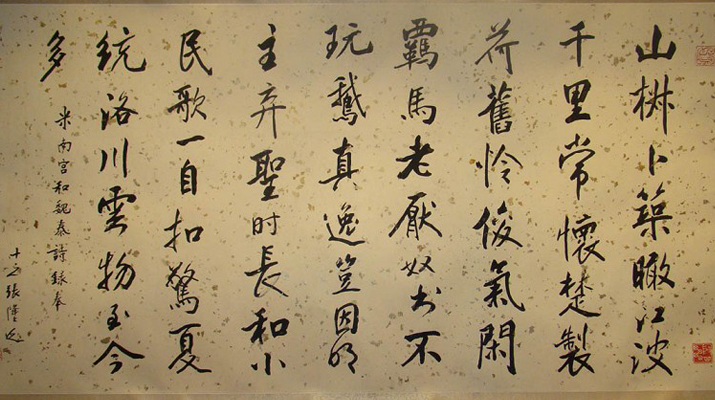 山椒卜築瞰江波
千里常懷楚製
荷舊怜俊氣閑
羈馬老厭奴书不
玩鵝真逸豈因明
主弃聖时長和小
民歌一自扣驚夏
統洛川雲物至今
多
米南宮和魏泰詩録奉
十之張隆延